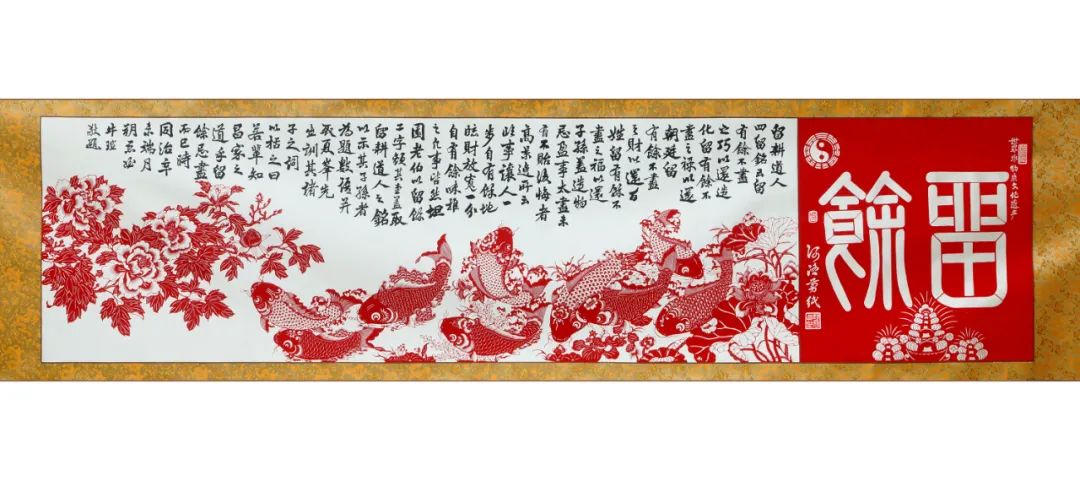 世界非物质文化遗产
留餘
河洛剪纸
留耕道人
四留銘云留
有餘不盡
之巧以還造
化留有餘不
盡之禄以還
朝廷留
有餘不盡
之財以還百
姓留有餘不
盡之福以還
子孫蓋造物
忌盈事太盡未
有不貽後悔者
高景逸所云
臨事讓人一
步自有餘地
臨財放寬一分
自有餘味推
之凡事皆然坦
園老伯以留餘
二字顏其堂蓋取
留耕道人之銘
以示其子孫者
為題數語并
取夏峯先
生訓其諸
子之詞
以括之曰
若輩知
昌家之
道乎留
餘忌盡
而已時
同治辛
未端月
朔愚姪
牛瑄
敬題